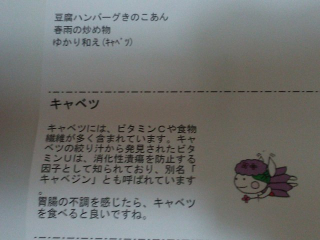 豆腐ハンバーグきのこあん
春雨の炒め物
ゆかり和え(ｷｬﾍﾞﾂ)
キャベツ
キャベツには、ビタミンCや食物
繊維が多く含まれています。キャ
ベツの絞り汁から発見されたビタ
ミンUは、消化性潰瘍を防止する
因子として知られており、別名「
キャベジン」とも呼ばれています
。
胃腸の不調を感じたら、キャベツ
を食べると良いですね。